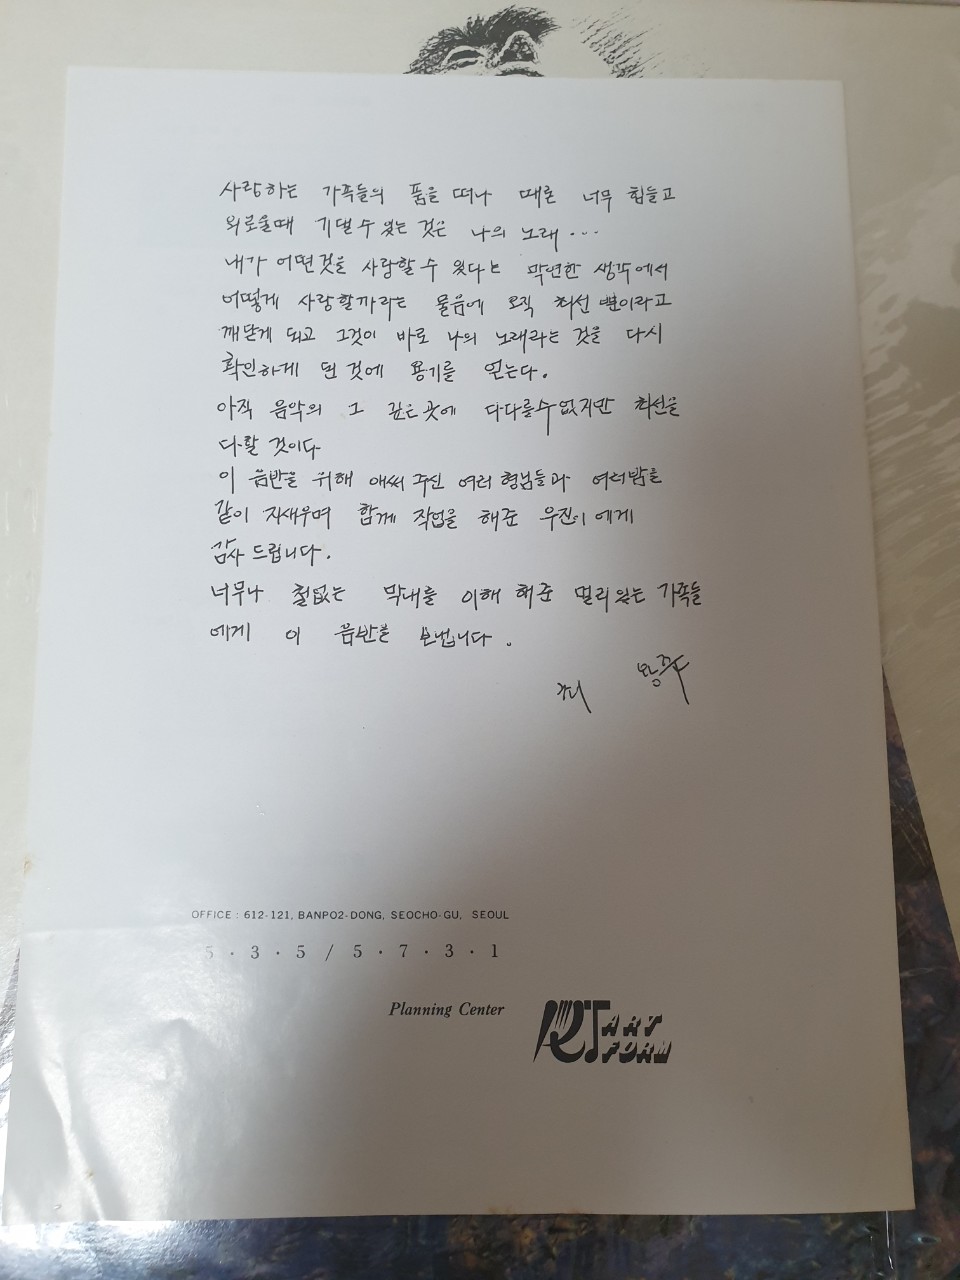 사랑하는 가족들의 품을 떠나 때론 너무 힘들고
외로울때 기댈수 있는 것은 나의 노래...
내가 어떤것을 사랑할 수 있다는 막연한 생각에서
어떻게 사랑할까라는 물음에 오직 최선 뿐이라고
깨닫게 되고 그것이 바로 나의 노래라는 것을 다시
확인하게 된 것에 용기를 얻는다.
아직 음악의 그 깊은곳에 다다를수없지만 최선을
다할 것이다
이 음반을 위해 애써 주신 여러 형님들과 여러밤을
같이 지새우며 함께 작업을 해준 우진이에게
감사 드립니다.
너무나 철없는 막내를 이해 해준 멀리있는 가족들
에게 이 음반을 보냅니다.
OFFICE : 612-121, BANPO2-DONG, SEOCHO-GU, SEOUL
5 · 3 · 5 / 5 · 7 · 3 · 1
Planning Center
ART FORM